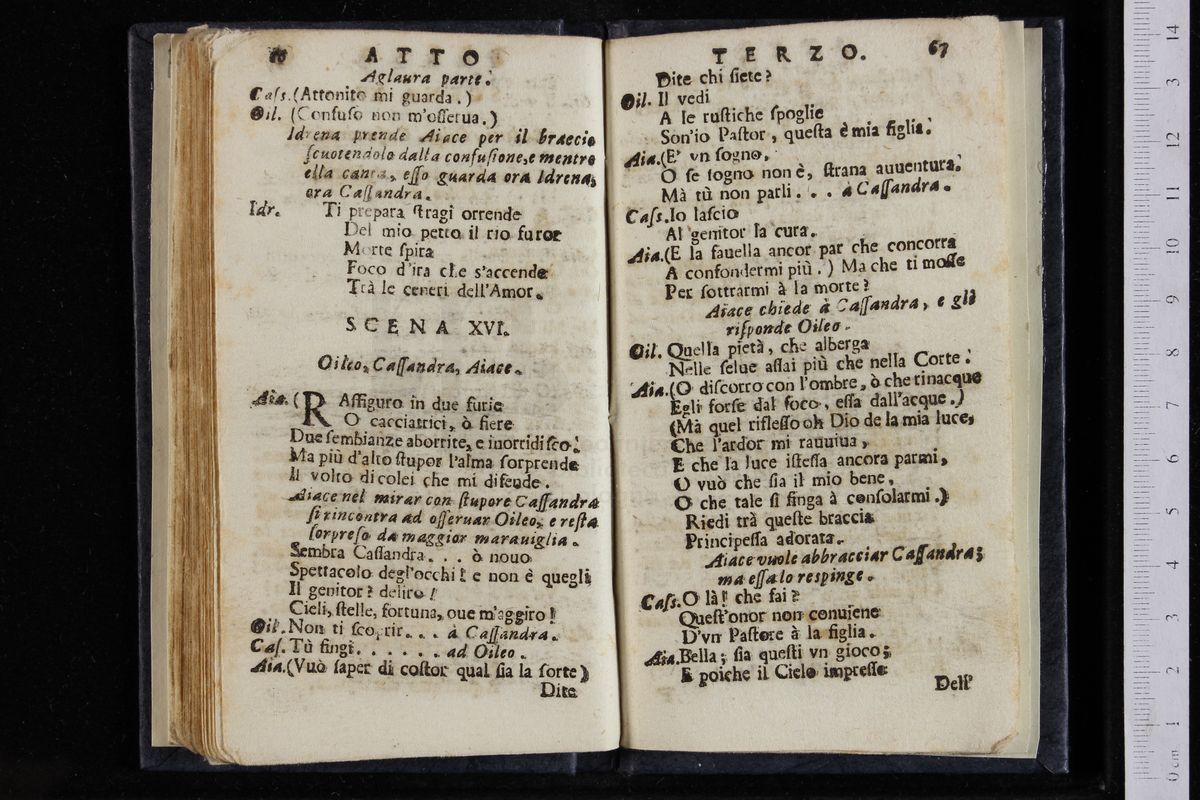 ATTO
Aglaura parte.
Cass. (Attonito mi guarda.)
Oil. (Confuso non m'osserua.)
Idrena prende Aiace per il braccio
scuotendolo dalla confusione, e mentre
ella canta, esso guarda ora Idrena,
ora Cassandra.
Idr. Ti prepara stragi orrende
Del mio petto il rio furor
Morte spira
Foco d'ira che s'accende
Trà le ceneri dell'Amor.
SCENA XVI.
Oileo, Cassandra, Aiace.
Aia. (RAffiguro in due furie
O cacciatrici, ò fiere
Due sembianze aborrite, e inorridisco!
Ma più d'alto stupor l'alma sorprende
Il volto di colei che mi difende.
Aiace nel mirar con stupore Cassandra
si rincontra ad osseruar Oileo, e resta
sorpreso da maggior marauiglia.
Sembra Cassandra... ò nouo
Spettacolo degl'occhi! e non è quegli
Il genitor? deliro!
Cieli, stelle, fortuna, oue m'aggiro!
Oil. Non ti scoprir... à Cassandra.
Cas. Tù fingi...... ad Oileo.
Aia. (Vuò saper di costor qual sia la sorte)
Dite
TERZO. 67
Dite chi siete?
Oil. Il vedi
A le rustiche spoglie
Son'io Pastor, questa è mia figlia.
Aia. (E' vn sogno,
O se sogno non è, strana auuentura.
Mà tù non parli... à Cassandra.
Cass. Io lascio
Al genitor la cura.
Aia. (E la fauella ancor par che concorra
A confondermi più.) Ma che ti mosse
Per sottrarmi à la morte?
Aiace chiede à Cassandra, e gli
risponde Oileo.
Oil. Quella pietà, che alberga
Nelle selue assai più che nella Corte.
Aia. (O discorro con l'ombre, ò che rinacque
Egli forse dal foco, essa dall'acque.)
(Mà quel riflesso oh Dio de la mia luce,
Che l'ardor mi rauuiua,
E che la luce istessa ancora parmi,
O vuò che sia il mio bene,
O che tale si finga à consolarmi.)
Riedi trà queste braccia
Principessa adorata.
Aiace vuole abbracciar Cassandra;
ma essa lo respinge.
Cass. O là! che fai?
Quest'onor non conuiene
D'vn Pastore à la figlia.
Aia. Bella; sia questi vn gioco;
E poiche il Cielo impresse
Dell'